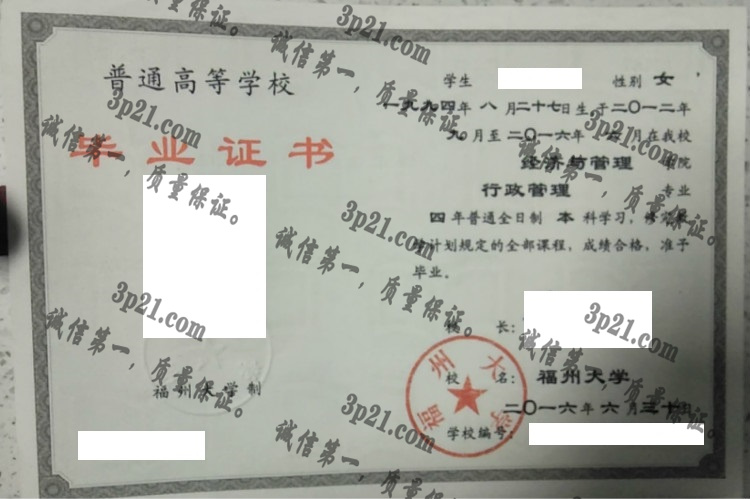 普通高等学校
毕业证书
福州大学制
学生 性别 女
一九九四年 八 月二十七日生于二〇一二年
九 月至 二〇一六年 六 月在我校
经济与管理 学院
行政管理 专业
四 年普通全日制 本 科学习，修完
计划规定的全部课程，成绩合格，准予
毕业。
长：
校 名：福州大学
二〇一六年 六 月三十日
学校编号：
福州大学
3p21.com
诚信第一，质量保证。
3p21.com
诚信第一，质量保证。
3p21.com
诚信第一，质量保证。
3p21.com
诚信第一，质量保证。
3p21.com
诚信第一，质量保证。
3p21.com
诚信第一，质量保证。
3p21.com
诚信第一，质量保证。